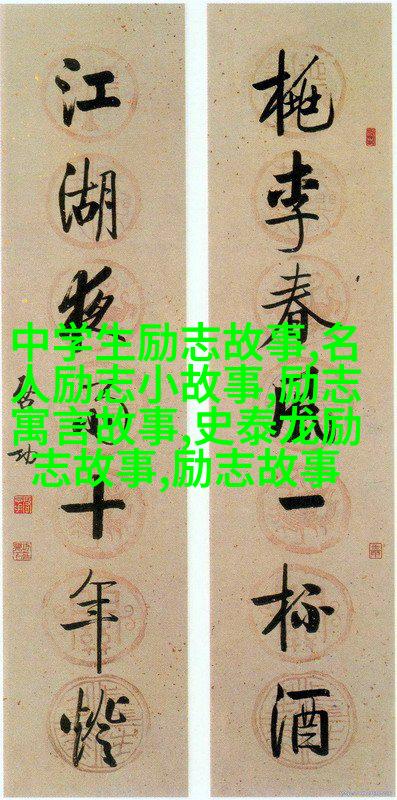 桃李春風一杯酒
江湖夜雨十年燈
启功
中学生励志故事,名
人励志小故事,励志
寓言故事,史泰龙励
志故事,励志故事